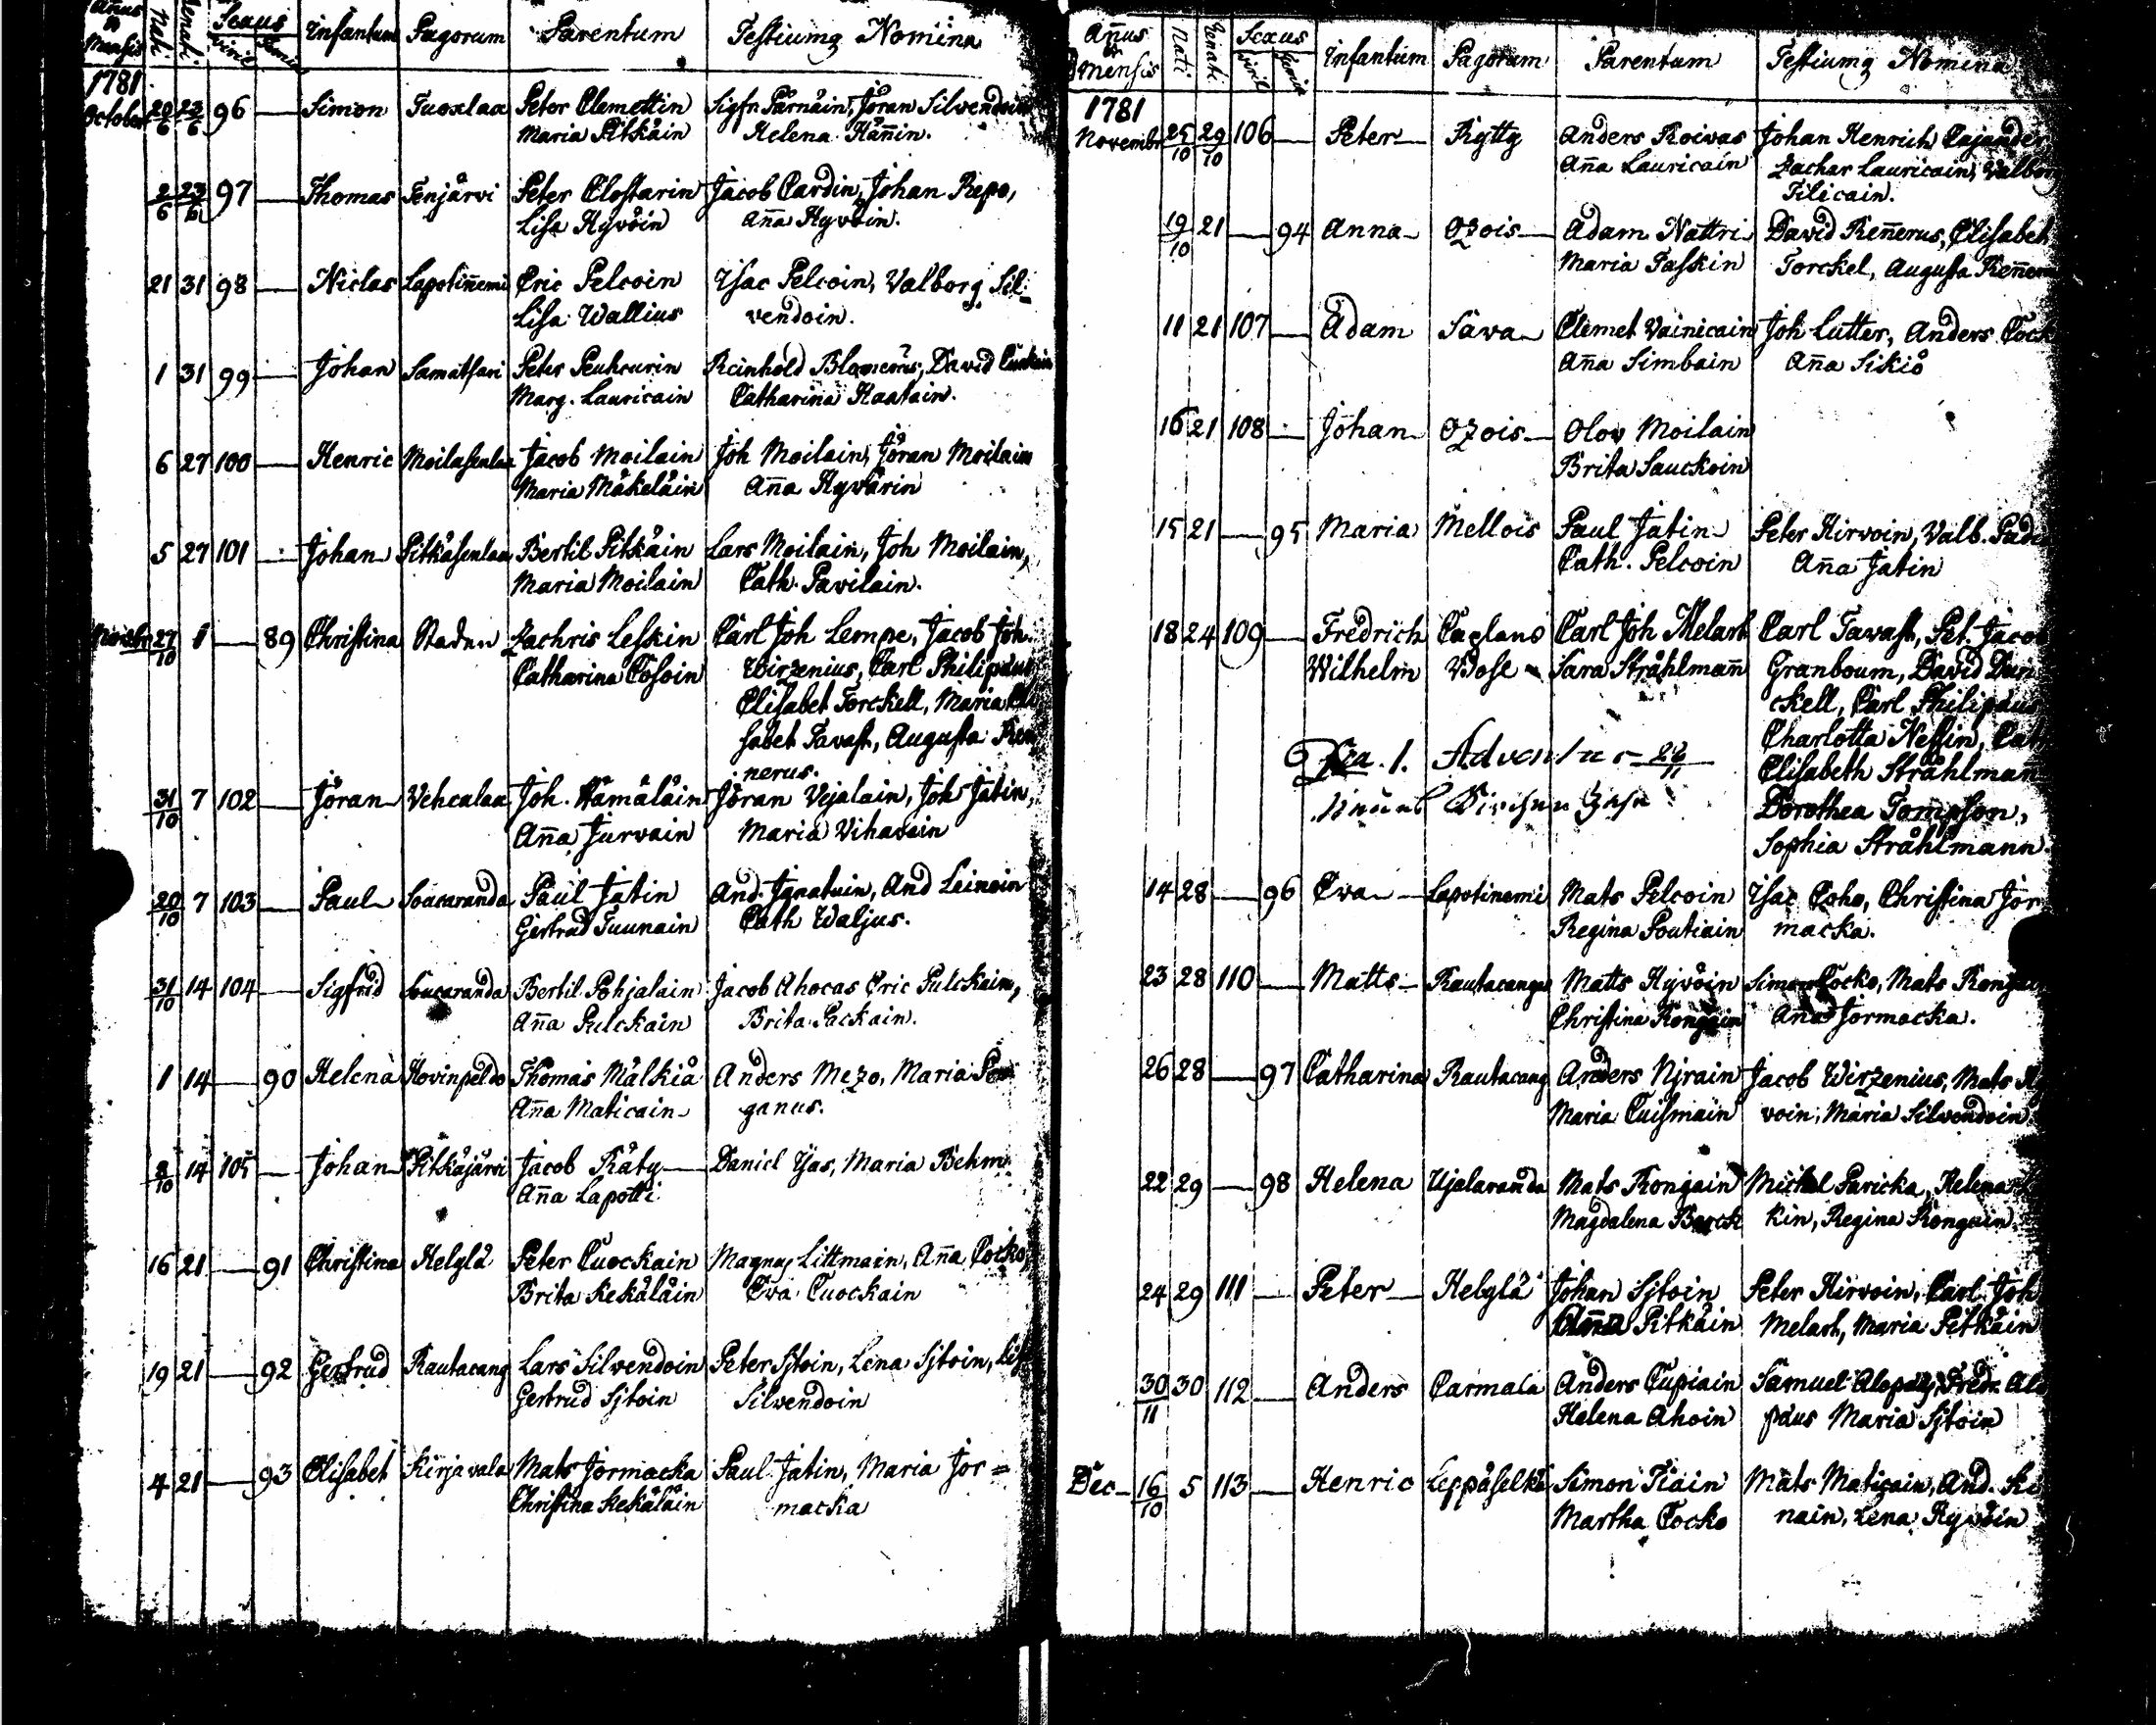 Añus & Mensis Nati. Renati. Sexus viril. Infantum Pagorum Parentum Testiumq Nomina
1781
October 20/6 23/6 96 — Simon Tuoxlax Peter Clemettin Sigfr. Pärnäin, Jöran Silvendoin
Maria Pitkäin Helena Häñin.
2/6 23/6 97 — Thomas Tenjärvi Peter Clostarin Jacob Cardin, Johan Repo,
Lisa Hyvöin Aña Hyvöin.
21 31 98 — Niclas Lapotiñemi Eric Pelcoin Isac Pelcoin, Valborg Sil-
Lisa Wallius vendoin.
1 31 99 — Johan Samatsari Peter Peuhcurin Reinhold Blomerus, David
Marg. Lauricain Catharina Haatain.
6 27 100 — Henric Moilasenlax Jacob Moilain Joh Moilain, Jöran Moilain
Maria Mäkeläin Aña Hyvärin
5 27 101 — Johan Pitkäsenlax Bertil Pitkäin Lars Moilain, Joh Moilain,
Maria Moilain Cath. Pavilain.
27/10 1 — 89 Christina Staden Zachris Leskin Carl Joh Lempe, Jacob Joh.
Catharina Cosoin Wirzenius, Carl Philipæus
Elisabet Torckell, Maria Eli
sabet Tavast, Augusta Ren
nerus.
31/10 7 102 — Jöran Vehcalax Joh. Hämäläin Jöran Vejalain, Joh Jatin,
Aña Jurvain Maria Vihavain
20/10 7 103 — Paul Soucaranda Paul Jatin And. Ignatuin, And Leinoin
Gertrud Tuunain Cath Waljus.
31/10 14 104 — Sigfrid Soucaranda Bertil Pohjalain Jacob Ahocas Eric Pulckain,
Aña Pulckain Brita Packain.
1 14 — 90 Helena Hovinpeldo Thomas Mälkiä Anders Mezo, Maria
Aña Maticain ganus.
8/10 14 105 — Johan Pitkäjärvi Jacob Räty Daniel Ijas, Maria Behm
Aña Lapotti
16 21 — 91 Christina Helylä Peter Cuockain Magnus Littmain, Aña Cocko,
Brita Kekäläin Eva Cuockain
19 21 — 92 Gertrud Rautacang Lars Silvendoin Peter Sjtoin, Lena Sjtoin, Lisa
Gertrud Sjtoin Silvendoin
4 21 — 93 Elisabet Kirjavala Mats Jormacka Paul Jatin, Maria Jor=
Christina Kekäläin macka
Añus & Mensis Nati Renati Sexus viril Infantum Pagorum Parentum Testiumq Nomina
1781
Novembr 25/10 29/10 106 — Peter Rytty Anders Roivas Johan Henrich Cajander
Aña Lauricain Zachar Lauricain, Valborg
Tilicain.
19/10 21 — 94 Anna Ozois Adam Nattri David Reñerus, Elisabet
Maria Paskin Torckel, Augusta Reñerus
11 21 107 — Adam Sava Clemet Vainicain Joh Lutter, Anders Cock
Aña Simbain Aña Sikiö
16 21 108 — Johan Ozois Olov Moilain
Brita Sauckoin
15 21 — 95 Maria Mellois Paul Jatin Peter Hirvoin, Valb.
Cath. Pelcoin Aña Jatin
18 24 109 — Fredrich Caplans Carl Joh Melart Carl Tavast, Pet. Jacob
Wilhelm Bose Sara Stråhlmañ Granboum, David Dun
ckell, Carl Philipæus
Charlotta Nessin, Cath
Dca. 1. Adventus 24/11 Elisabeth Stråhlman
Dorothea Tompson,
Sophia Stråhlmann.
14 28 — 96 Eva Lapotinemi Mats Pelcoin Isac Coho, Christina Jor
Regina Poutiain macka.
23 28 110 — Matts Rautacangas Matts Hyvöin Simon Cocko, Mats Rongain
Christina Rongain Aña Jormacka.
26 28 — 97 Catharina Rautacang Anders Nirain Jacob Wirzenius, Mats Hy
Maria Cuismain voin, Maria Silvendoin
22 29 — 98 Helena Ujalaranda Mats Rongain Michel Paricka, Helena
Magdalena Borck kin, Regina Rongain
24 29 111 — Peter Helylä Johan Sjtoin Peter Hirvoin, Carl Joh
Aña Pitkäin Melart, Maria Pitkäin
30/11 30 112 — Anders Carmala Anders Cupiain Samuel Alopæus, Fredr. Alo
Helena Ahoin pæus Maria Sjtoin
Dec 16/10 5 113 — Henric Leppäselkä Simon Tiain Mats Maticain, And. Ki
Martha Cocko nain, Lena Hyvöin